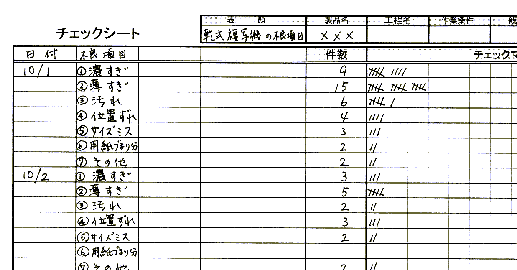 表 題 製品名 工程名 作業条件
チェックシート 乾式複写機の不良項目 ×××
日付 不良項目 件数 チェックマ
10/1 ①濃すぎ 9
②薄すぎ 15
③汚れ 6
④位置ずれ 4
⑤サイズミス 3
⑥用紙 2
⑦その他 2
10/2 ①濃すぎ 3
②薄すぎ 5
③汚れ 2
④位置ずれ 3
⑤サイズミス 2
⑥用紙
⑦その他 2